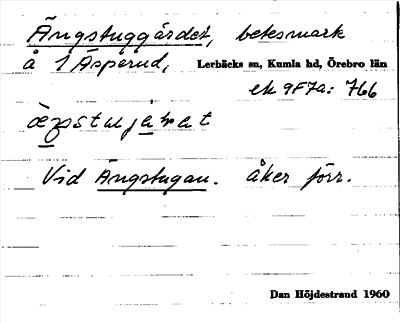 Ängstuggärdet, betesmark
å 1 Åsperud, Lerbäcks sn, Kumla hd, Örebro län
ek 9F7a: 766
Vid Ängstugan. åker förr.
Dan Höjdestrand 1960